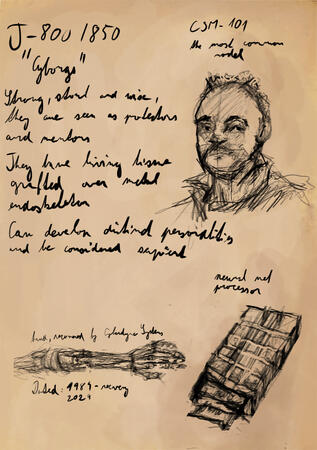 J-800 1850
"Cyborgs"
Strong, stout and wise,
they are seen as protectors
and mentors
They have living tissue
grafted over metal
endoskeleton
Can develop distinct personalities
and be considered sapient
CSM-101
the most common
model
neural net
processor
recovered by Cyberdyne Systems
Dated: 1984 -
2029